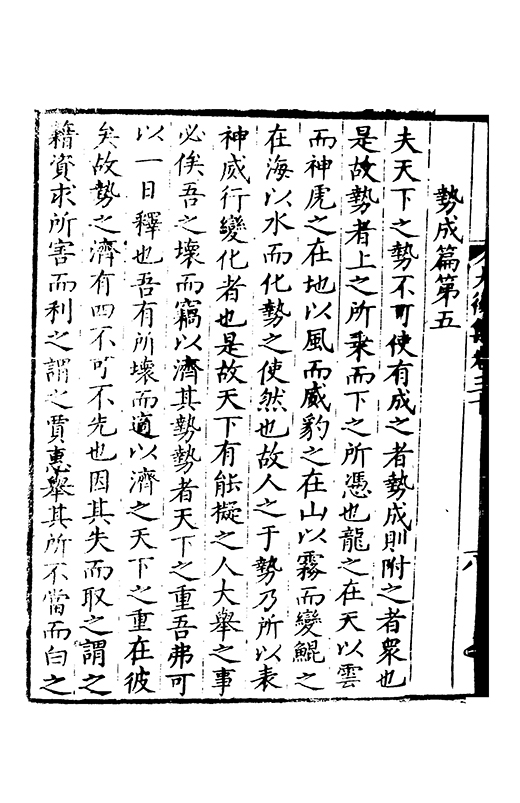 勢成篇第五
夫天下之勢不可使有成之者勢成則附之者衆也
是故勢者上之所乗而下之所憑也龍之在天以雲
而神虎之在地以風而威豹之在山以霧而變鯤之
在海以水而化勢之使然也故人之于勢乃所以表
神威行變化者也是故天下有能擬之人大舉之事
必俟吾之壞而竊以濟其勢勢者天下之重吾弗可
以一日釋也吾有所壞而適以濟之天下之重在彼
矣故勢之濟有四不可不先也因其失而取之謂之
藉資求所害而利之謂之賈惠舉其所不當而白之